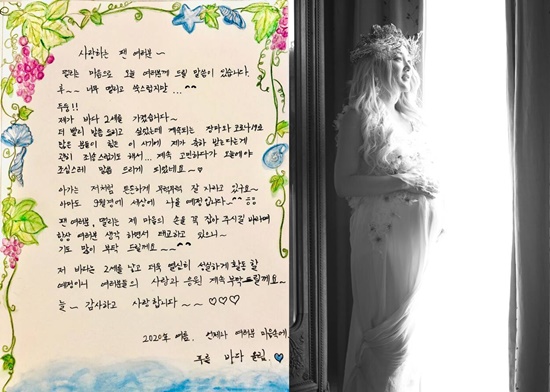 사랑하는 팬 여러분~
떨리는 마음으로 오늘 여러분께 드릴 말씀이 있습니다.
후~~ 너무 떨리고 쑥스럽지만...^^
두둥!!
제가 바다 2세를 가졌습니다~
더 빨리 말씀 드리고 싶었는데 계속되는 장마와 코로나19로
많은 분들이 힘든 이 시기에 제가 축하 받는다는게
괜히 조심스럽기도 해서... 계속 고민하다가 오늘에야
조심스레 말씀 드리게 되었네요~♡
아가는 저처럼 튼튼하게 무럭무럭 잘 자라고 있구요~
아마도 9월경에 세상에 나올 예정입니다~^^
팬 여러분, 떨리는 제 마음의 손을 꼭 잡아 주시길 바라며
항상 여러분 생각 하면서 태교하고 있으니~
기도 많이 부탁 드릴게요~~^^
저 바다는 2세를 낳고 더욱 열심히 성실하게 활동 할
예정이니 여러분들의 사랑과 응원 계속 부탁드릴께요~
늘~ 감사하고 사랑합니다~~♡♡♡
2020년 여름. 언제나 여러분 마음속에,
푸를 바다 올림.